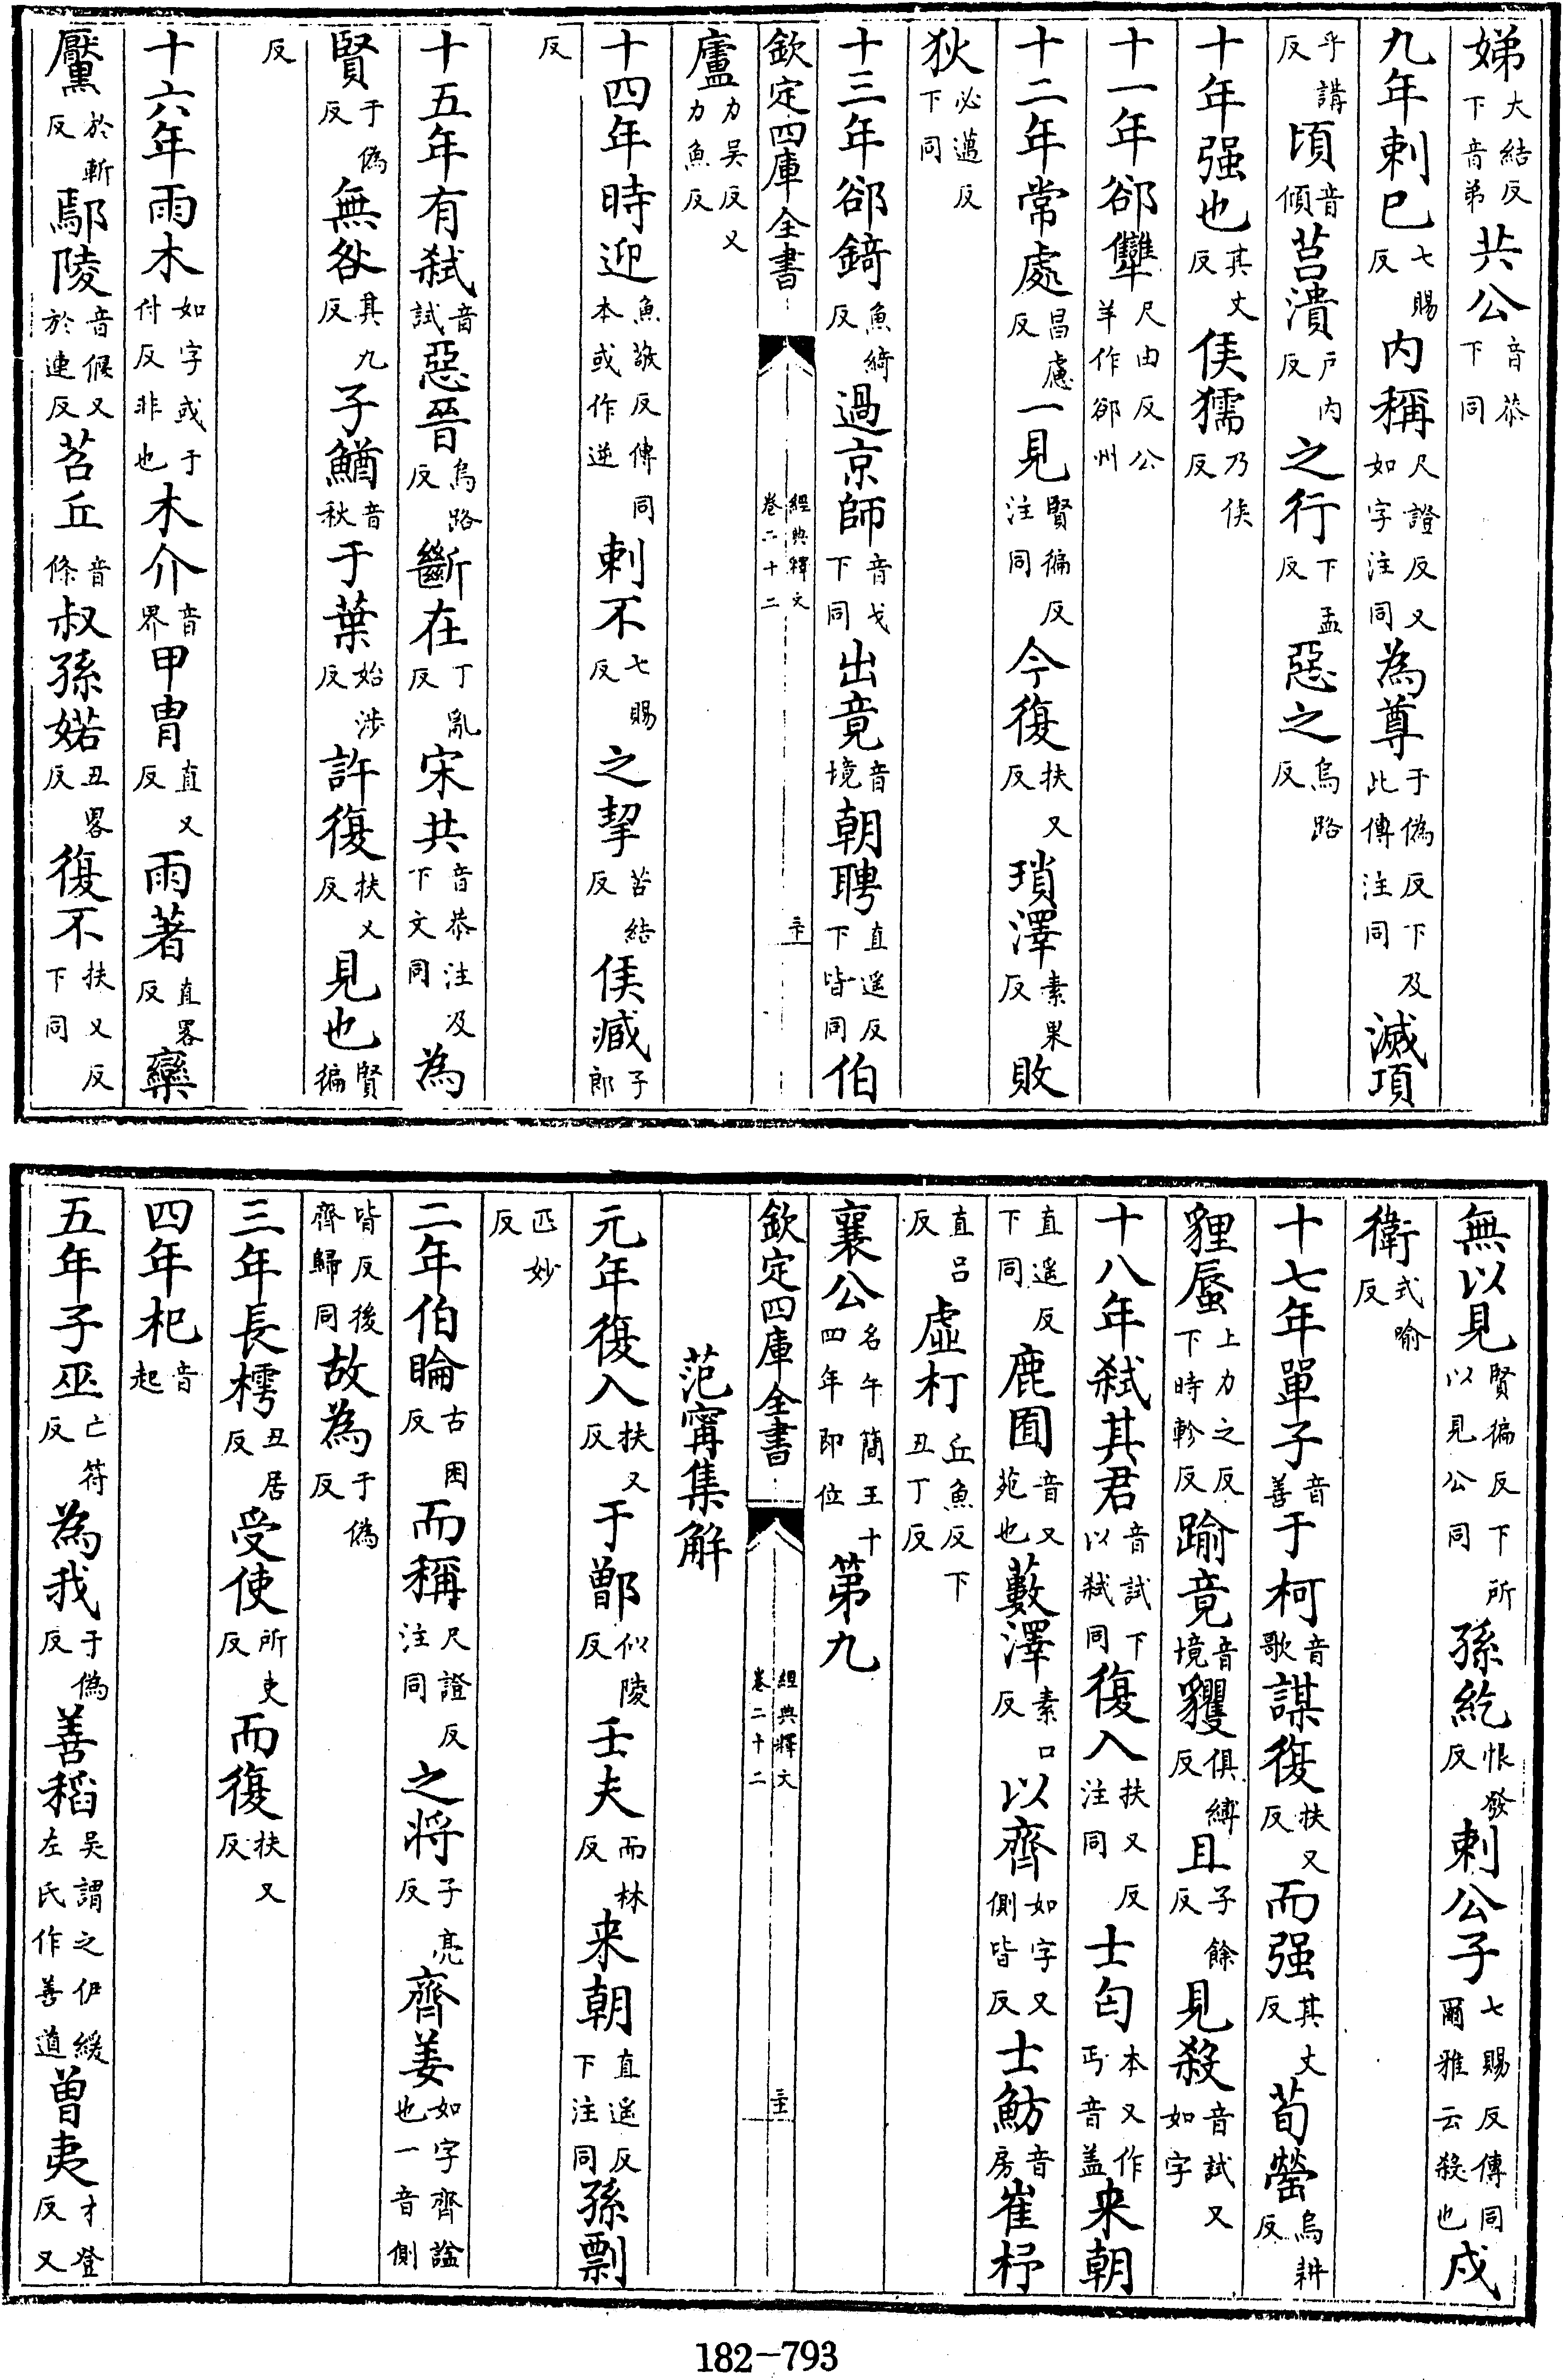 娣大結反下音弟共公音恭下同
九年刺巳七賜反内稱尺證反又如字注同為尊于偽反下及此傳注同滅項
乎講反頃音傾莒潰戸内反之行下孟反惡之烏路反
十年强也其丈反侯獳乃侯反
十一年郤犨尺由反公羊作郤州
十二年常處昌慮反一見賢徧反注同今復扶又反瑣澤素果反敗
狄必邁反下同
十三年郤錡魚綺反過京師音戈下同出竟音境朝聘直遥反下皆同伯
欽定四庫全書 經典釋文卷二十二 二十
盧力吳反又力魚反
十四年時迎魚敬反傳同本或作逆刺不七賜反之挈苦結反侯臧子郎
反
十五年有弑音試惡晉烏路反斷在丁亂反宋共音恭注及下文同為
賢于偽反無咎其九反子鰌音秋于葉始涉反許復扶又反見也賢徧
反
十六年雨木如字或于付反非也木介音界甲胄直又反雨著直畧反欒
黶於斬反鄢陵音偃又於連反苕丘音條叔孫婼丑畧反復不扶又反下同
無以見賢徧反下所以見公同孫紇恨發反刺公子七賜反傳同爾雅云殺也戍
衛式喻反
十七年單子音善于柯音歌謀復扶又反而强其丈反荀罃烏耕反
貍蜃上力之反下時軫反踰竟音境貜俱縛反且子餘反見殺音試又如字
十八年弑其君音試下以弑同復入扶又反注同士匄本又作丐音盖来朝
直遥反下同鹿囿音又苑也藪澤素口反以齊如字又側皆反士魴音房崔杼
直吕反虚朾丘魚反下丑丁反
襄公名午簡王十四年即位第九
欽定四庫全書 經典釋文卷二十二 二十一
范甯集解
元年復入扶又反于鄫似陵反壬夫而林反来朝直遥反下注同孫剽
匹妙反
二年伯睔古困反而稱尺證反注同之將子亮反齊姜如字齊諡也一音側
皆反後齊歸同故為于偽反
三年長樗丑居反受使所吏反而復扶又反
四年杞音起
五年子巫亡符反為我于偽反善稻吴謂之伊緩左氏作善道曽夷才登反又
182-793